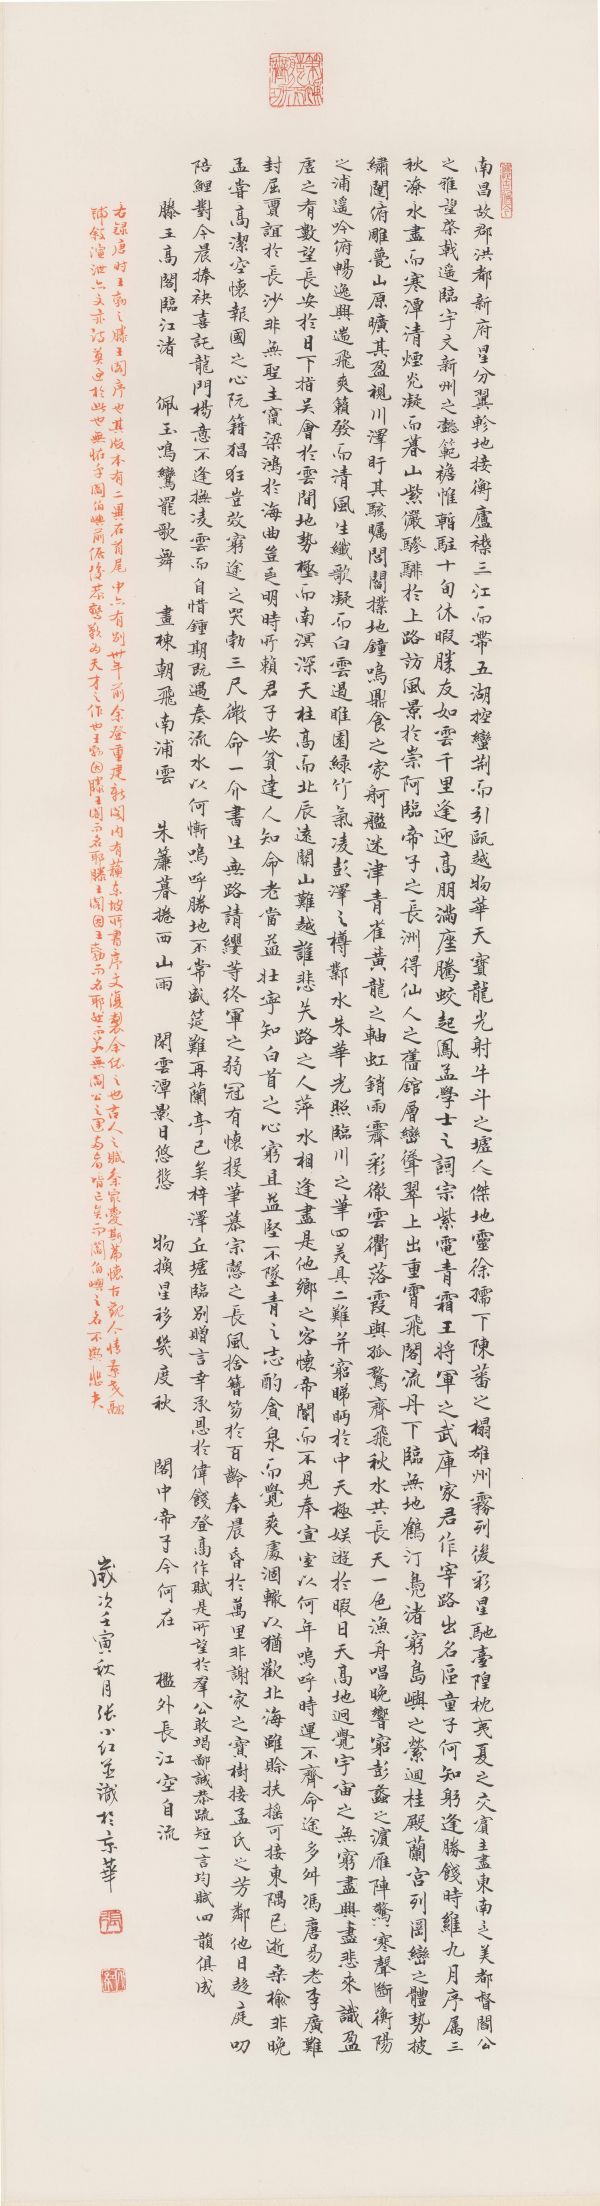 南昌故郡洪都新府星分翼軫地接衡廬襟三江而帶五湖控蠻荊而引甌越物華天寶龍光射牛斗之墟人傑地靈徐孺下陳蕃之榻雄州霧列俊彩星馳臺隍枕夷夏之交賓主盡東南之美都督閻公
之雅望棨戟遙臨宇文新州之懿範襜帷暫駐十旬休暇勝友如雲千里逢迎高朋滿座騰蛟起鳳孟學士之詞宗紫電青霜王將軍之武庫家君作宰路出名區童子何知躬逢勝餞時維九月序屬三
秋潦水盡而寒潭清煙光凝而暮山紫儼驂騑於上路訪風景於崇阿臨帝子之長洲得仙人之舊館層巒聳翠上出重霄飛閣流丹下臨無地鶴汀鳧渚窮島嶼之縈迴桂殿蘭宮列岡巒之體勢披
繡闥俯雕甍山原曠其盈視川澤盱其駭矚閭閻撲地鐘鳴鼎食之家舸艦迷津青雀黃龍之軸虹銷雨霽彩徹雲衢落霞與孤鶩齊飛秋水共長天一色漁舟唱晚響窮彭蠡之濱雁陣驚寒聲斷衡陽
之浦遙吟俯暢逸興遄飛爽籟發而清風生纖歌凝而白雲遏睢園綠竹氣凌彭澤之樽鄴水朱華光照臨川之筆四美具二難并窮睇眄於中天極娛遊於暇日天高地迥覺宇宙之無窮盡興盡悲來識盈
虛之有數望長安於日下指吳會於雲間地勢極而南溟深天柱高而北辰遠關山難越誰悲失路之人萍水相逢盡是他鄉之客懷帝閽而不見奉宣室以何年嗚呼時運不齊命途多舛馮唐易老李廣難
封屈賈誼於長沙非無聖主竄梁鴻於海曲豈乏明時所賴君子安貧達人知命老當益壯寧知白首之心窮且益堅不墜青之志酌貪泉而覺爽處涸轍以猶歡北海雖賒扶搖可接東隅已逝桑榆非晚
孟嘗高潔空懷報國之心阮籍猖狂豈效窮途之哭勃三尺微命一介書生無路請纓等終軍之弱冠有懷投筆慕宗愨之長風捨簪笏於百齡奉晨昏於萬里非謝家之寶樹接孟氏之芳鄰他日趨庭叨
陪鯉對今晨捧袂喜託龍門楊意不逢撫凌雲而自惜鍾期既遇奏流水以何慚嗚呼勝地不常盛筵難再蘭亭已矣梓澤丘墟臨別贈言幸承恩於偉餞登高作賦是所望於羣公敢竭鄙誠恭疏短一言均賦四韻俱成
滕王高閣臨江渚 佩玉鳴鸞罷歌舞 畫棟朝飛南浦雲 朱簾暮捲西山雨 閑雲潭影日悠悠 物換星移幾度秋 閣中帝子今何在 檻外長江空自流
右錄唐時王勃之滕王閣序也其版本有二異在首尾中亦有別卅年前余登重建新閣內有蘇東坡所書序文復製余依之也古人之賦余最愛斯篇懷古觀今情景交融
鋪敘渲泄六文亦詩莫過於此也無怪乎閻伯嶼前倨後恭驚歎為天才之作也王勃因滕王閣而名耶滕王閣因王勃而名耶然而若無閻公之運者皆已矣而閻伯嶼之名不顯悲夫
歲次壬寅秋月張小紅並識於京華